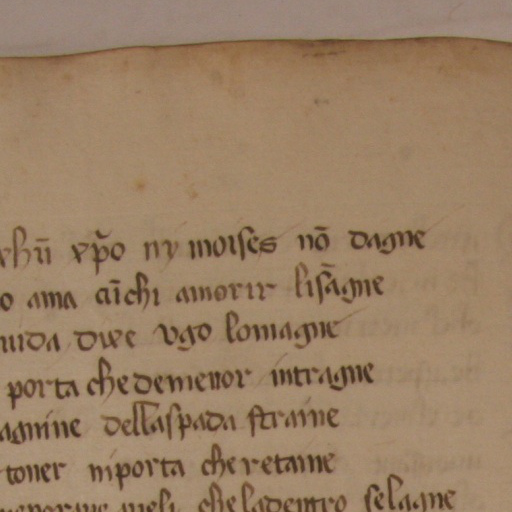 xp̄o ny moises nō dagne
o ama cūchi amorir lisāgne
uida dixe vgo lomagne
porta chedemenor intragne
agnine dellaspada straine
toner niporta cheretaine
cheladentro selagne